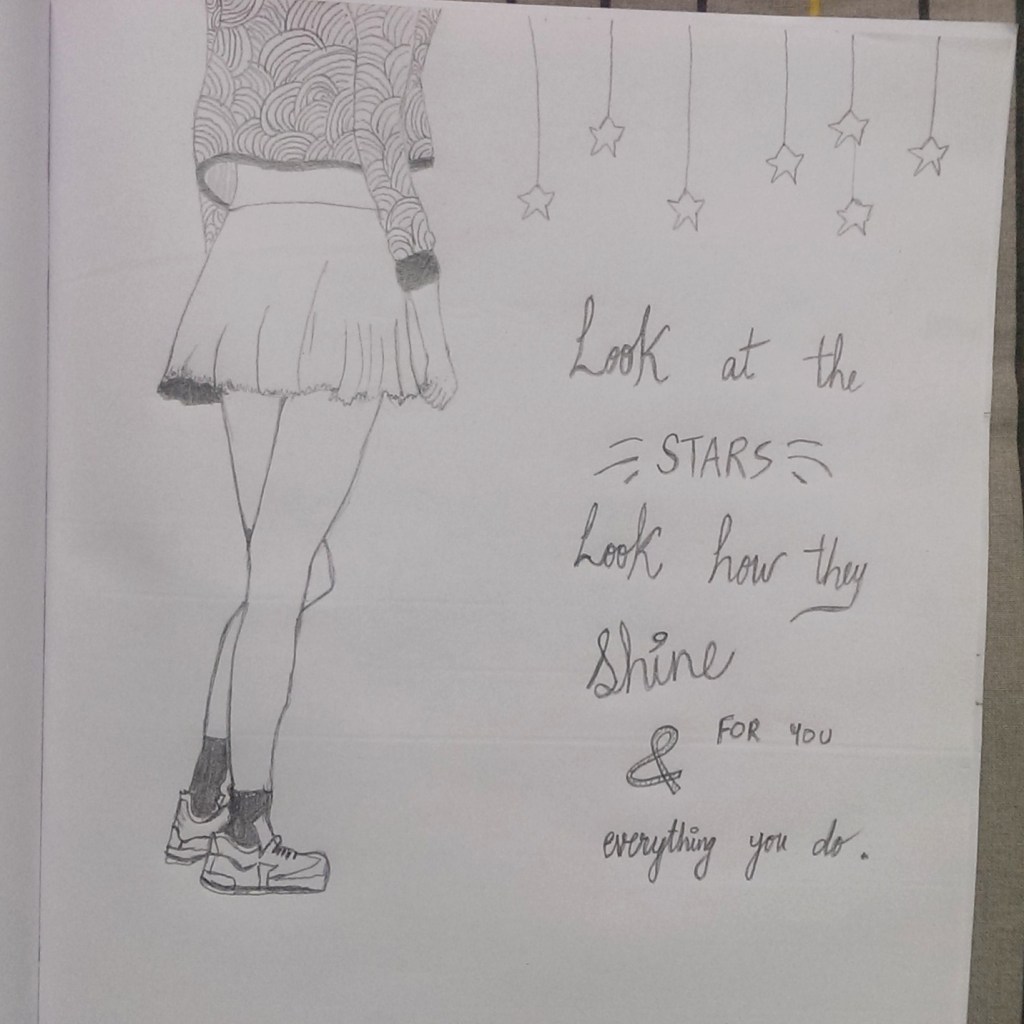 Look at the
STARS
Look how they
Shine
FOR YOU
&
everything you do.